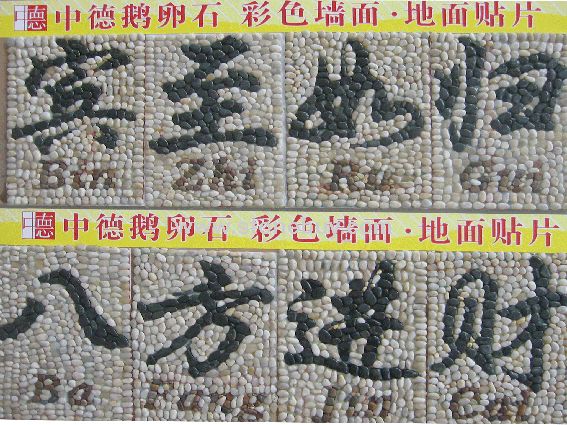 中德 中德鹅卵石 彩色墙面·地面贴片
宾至如归
Bin Zhi Ru Gui
中德 中德鹅卵石 彩色墙面·地面贴片
八方进财
Ba Fang Jin Cai